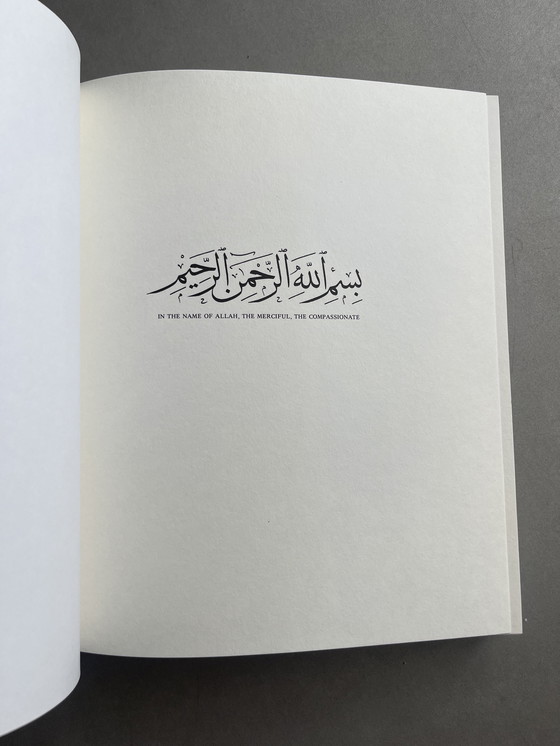 بِسْمِ اللَّهِ الرَّحْمَٰنِ الرَّحِيمِ
IN THE NAME OF ALLAH, THE MERCIFUL, THE COMPASSIONATE